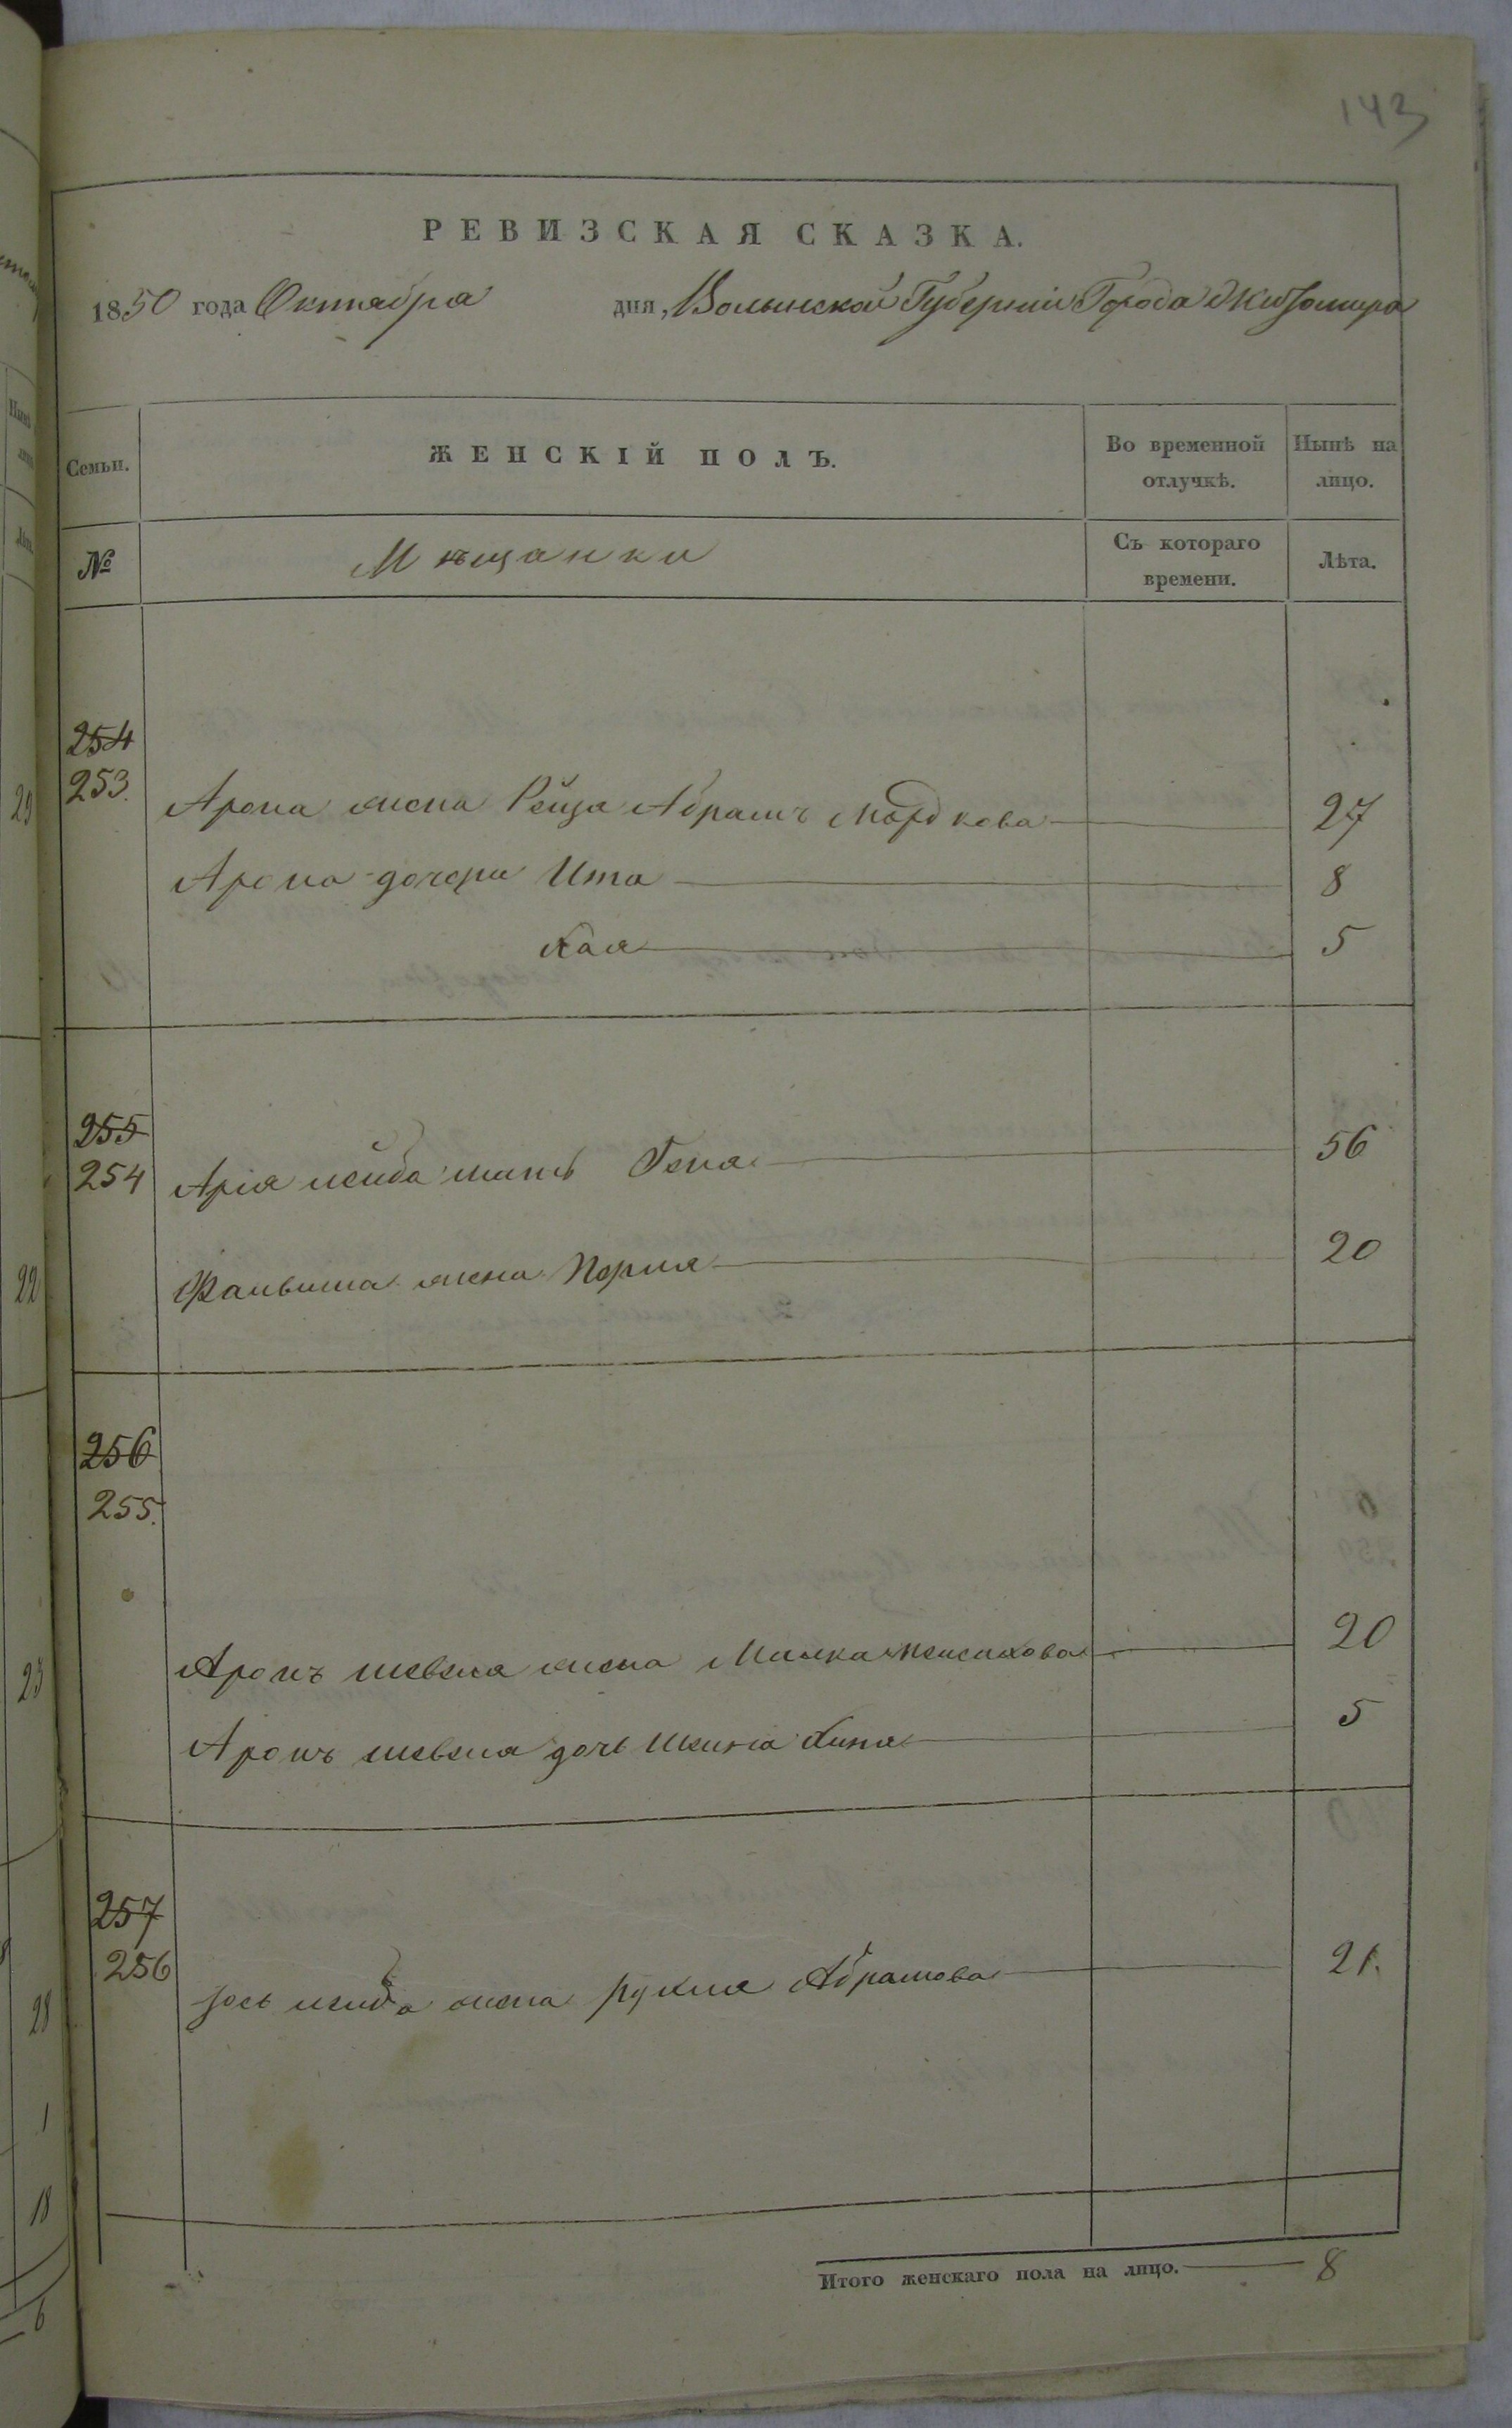 143
РЕВИЗСКАЯ СКАЗКА.
1850 года Октября дня, Волынской Губерніи Города Житомира
Семьи. ЖЕНСКІЙ ПОЛЪ. Во временной отлучкѣ. Нынѣ на лицо.
№ Мѣщанки Съ котораго времени. Лѣта.
254
253. Арона жена Рейза Абрамъ Мордкова 27
Арона дочери Ита 8
Хая 5
255
254 Арія лейба мать Геня 56
Файвиша жена Перля 20
256
255.
Аронъ шевеля жена Малка 20
Аронъ шевеля дочь 5
257
256 Іось лейба жена Рухля Абрамова 21.
Итого женскаго пола на лицо. 8
29
22
23
28
1
18
6